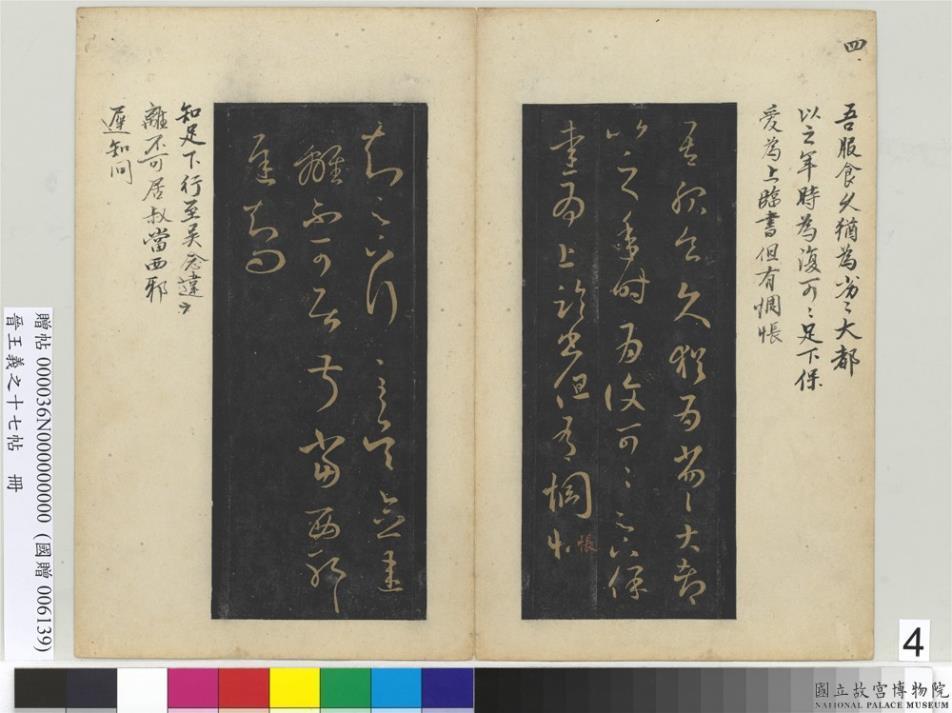 四
吾服食久猶為劣〻大都
以之年時為復可〻足下保
愛為上臨書但有惆悵
吾服食久猶為劣〻大都
以之年時為復可〻足下保
愛為上臨書但有惆悵
悵
知足下行至吳念違
離不可居叔當西耶
遲知問
知足下行至吳念違
離不可居叔當西邪
遲知問
贈帖 000036N000000000 (國贈 006139)
晉王羲之十七帖 冊
4
國立故宮博物院
NATIONAL PALACE MUSEUM